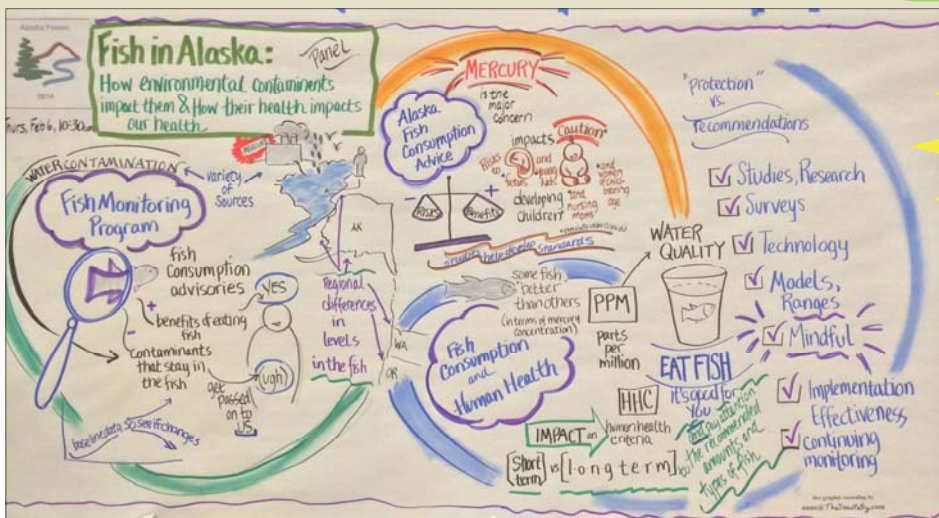 Alaska Forum
2014
Fish in Alaska:
Panel
How environmental contaminents
impact them & How their health impacts
our health
Thurs, Feb 6, 10:30am
WATER CONTAMINATION
variety of
Sources
Fish Monitoring
Program
fish
Consumption
advisories
+
benefits of eating
fish
YES
-
Contaminants
that stay in
the fish
get
passed
on to
US
(ugh)
baseline data so see if changes
AK
Regional
differences
in
levels
in the fish
WA
OR
MERCURY
is the
major
concern
Alaska
Fish
Consumption
Advice
impacts
Caution*
Risks
to
*fetus
and
young
kids*
*and
women
of child-
bearing
age
developing
children?
*and
nursing
moms
-
Risks
+
Benefits
studies help develop standards
some fish
better
than others
(in terms of mercury
concentration)
Fish
Consumption
and
Human Health
PPM
parts
per
million
WATER
QUALITY
EAT FISH
It's good for
You
and pay attention
to the recommended
amounts and
types of fish
HHC
human health
criteria
IMPACT on
[Short term] vs [long term]
"protection"
vs.
recommendations
Studies, Research
Surveys
Technology
Models,
Ranges
Mindful
Implementation
Effectiveness,
continuing
monitoring
live graphic recording by
TheDoodleBiz.com